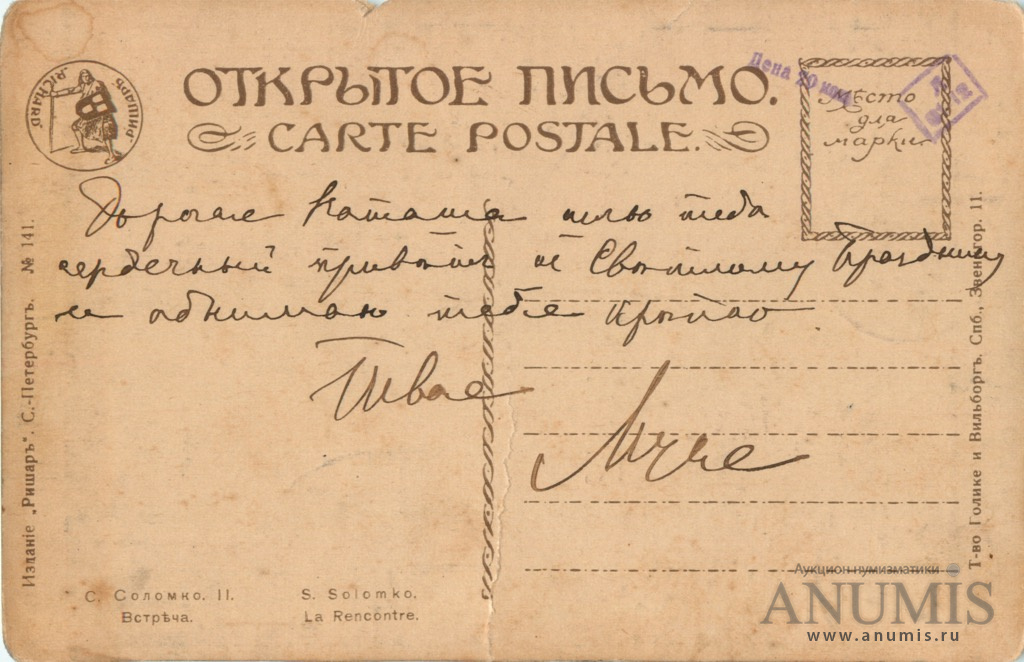 РИШАРЪ "RICHARD"
ОТКРЫТОЕ ПИСЬМО.
CARTE POSTALE.
Цена 20 коп.
Место
для
марки
Дорогая Наташа шлю тебѣ
сердечный привѣтъ къ Свѣтлому Празднику
и обнимаю тебя крѣпко
Твоя
Муся
Изданіе „Ришаръ". С.-Петербургъ. № 141.
Т-во Голике и Вильборгъ. Спб., Звенигор. 11.
С. Соломко. II.
Встрѣча.
S. Solomko.
La Rencontre.
Аукцион нумизматики
ANUMIS
www.anumis.ru